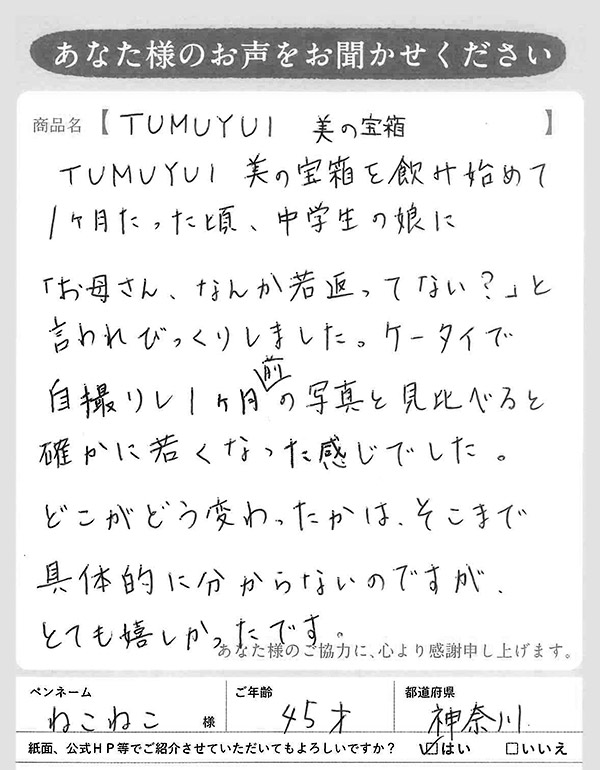 あなた様のお声をお聞かせください
商品名【TUMUYUI 美の宝箱】
TUMUYUI 美の宝箱を飲み始めて
1ヶ月たった頃、中学生の娘に
「お母さん、なんか若返ってない?」と
言われびっくりしました。ケータイで
自撮りし1ヶ月前の写真と見比べると
確かに若くなった感じでした。
どこがどう変わったかは、そこまで
具体的に分からないのですが、
とても嬉しかったです。
あなた様のご協力に、心より感謝申し上げます。
ペンネーム ご年齢 都道府県
ねこねこ 様 45才 神奈川
紙面、公式HP等でご紹介させていただいてもよろしいですか? ☑はい □いいえ